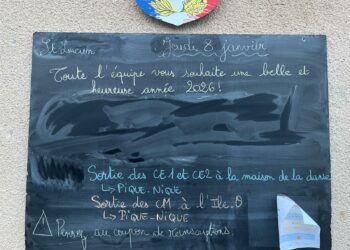 St Lucien
Jeudi 8 janvier
Toute l'équipe vous souhaite une belle et
heureuse année 2026!
Sortie des CE1 et CE2 à la maison de la danse
↳ PIQUE-NIQUE
Sortie des CM à l'Ile.O
↳ PIQUE-NIQUE
Pensez au coupon de réinscriptions.